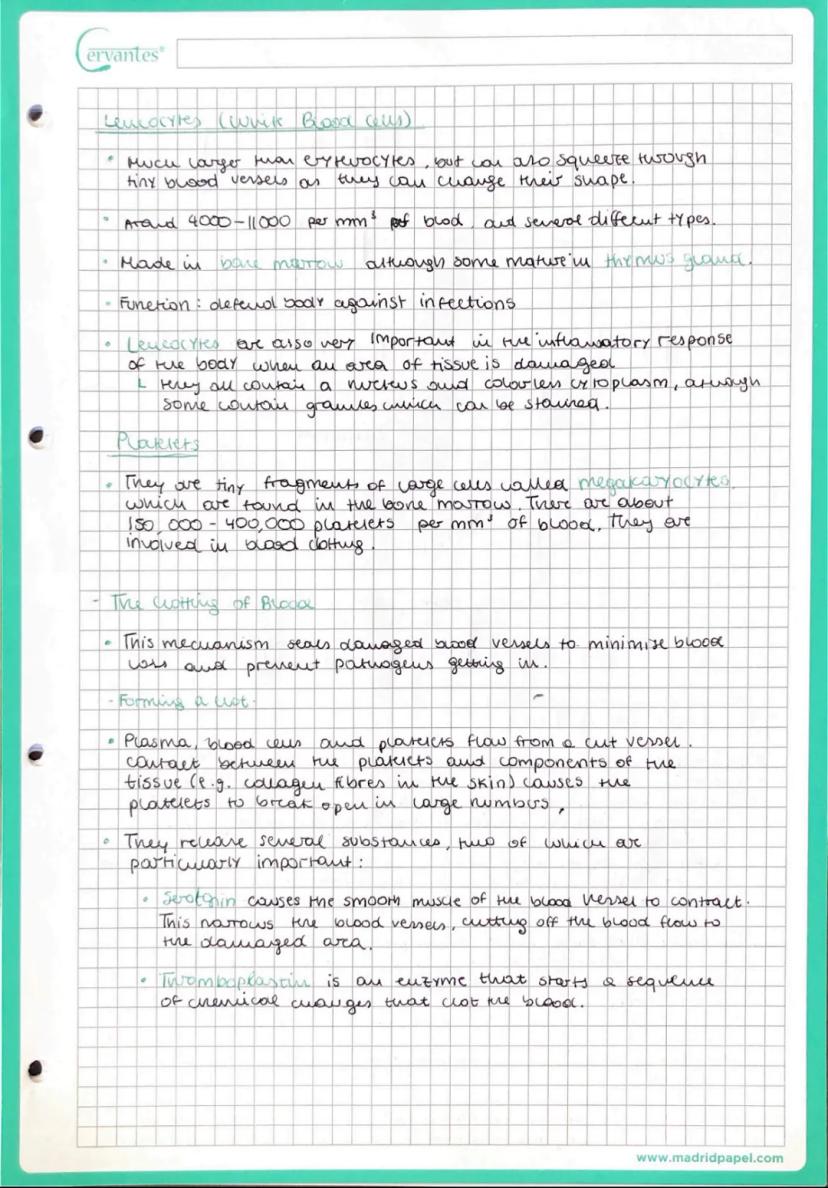 Cervantes®
Leucocytes (White Blood Cells)
• Much larger than erythrocytes, but can also squeeze through
tiny blood vessels as they can change their shape.
• Around 4000-11000 per mm³ of blood, and several different types.
• Made in bone marrow although some mature in thymus gland.
• Function: defend body against infections
• Leucocytes are also very important in the inflammatory response
of the body when an area of tissue is damaged
L they all contain a nucleus and colourless cytoplasm, although
some contain granules which can be stained.
Platelets
• They are tiny fragments of large cells called megakaryocytes,
which are found in the bone marrow. There are about
150,000 - 400,000 platelets per mm³ of blood. They are
involved in blood clotting.
- The Clotting of Blood
• This mechanism seals damaged blood vessels to minimise blood
loss and prevent pathogens getting in.
- Forming a clot.
• Plasma, blood cells and platelets flow from a cut vessel.
Contact between the platelets and components of the
tissue (e.g. collagen fibres in the skin) causes the
platelets to break open in large numbers.
• They release several substances, two of which are
particularly important:
• Serotonin causes the smooth muscle of the blood vessel to contract.
This narrows the blood vessels, cutting off the blood flow to
the damaged area.
• Thromboplastin is an enzyme that starts a sequence
of chemical changes that clot the blood.
www.madridpapel.com